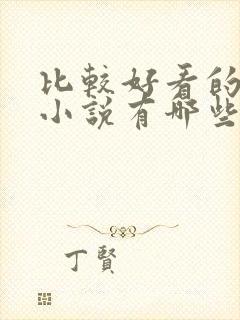 比較好看的
小說有哪些
丁賢